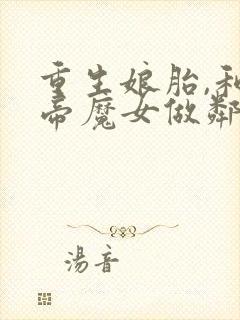 重生娘胎,和
帝魔女做鄰
湯音